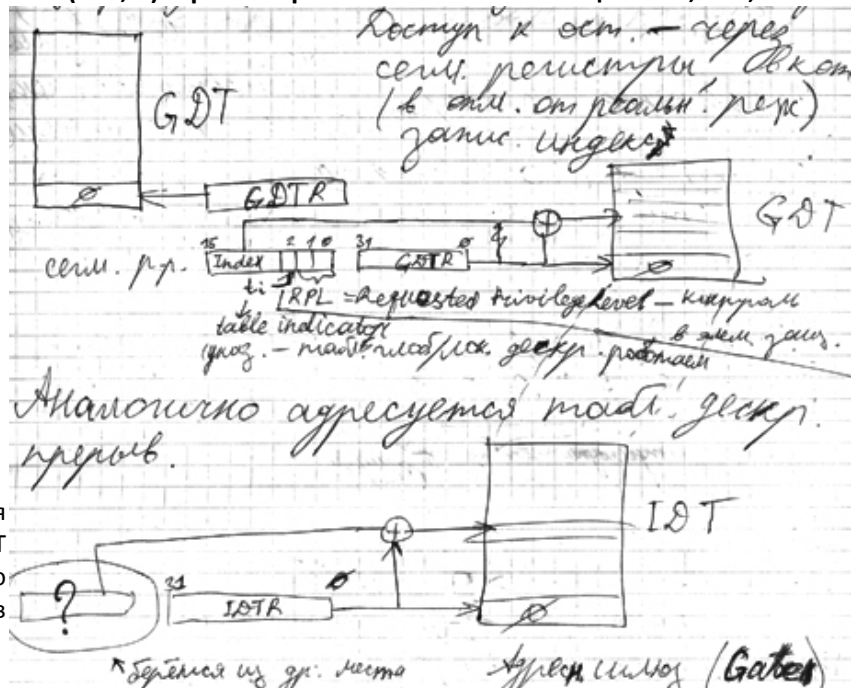 Доступ к ост. — через
сегм. регистры, в кот
(в отл. от реальн. реж)
запис. индекс
GDT
Ø
GDTR
GDT
сегм. р.р.
15 2 1 0
Index
31 Ø
GDTR
Ø
ti
RPL = Requested Privilege Level —
table indicator
в элем. защ.
указ. — табл глоб/лок. дескр. работаем
Аналогично адресуется табл. дескр.
прерыв.
IDT
я
Т
о
в
?
31 Ø
IDTR
Ø
берётся из др. места
шлюз (Gates)